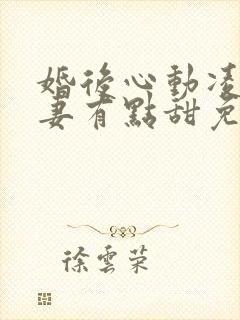 婚後心動凌
妻有點甜免
徐雲榮